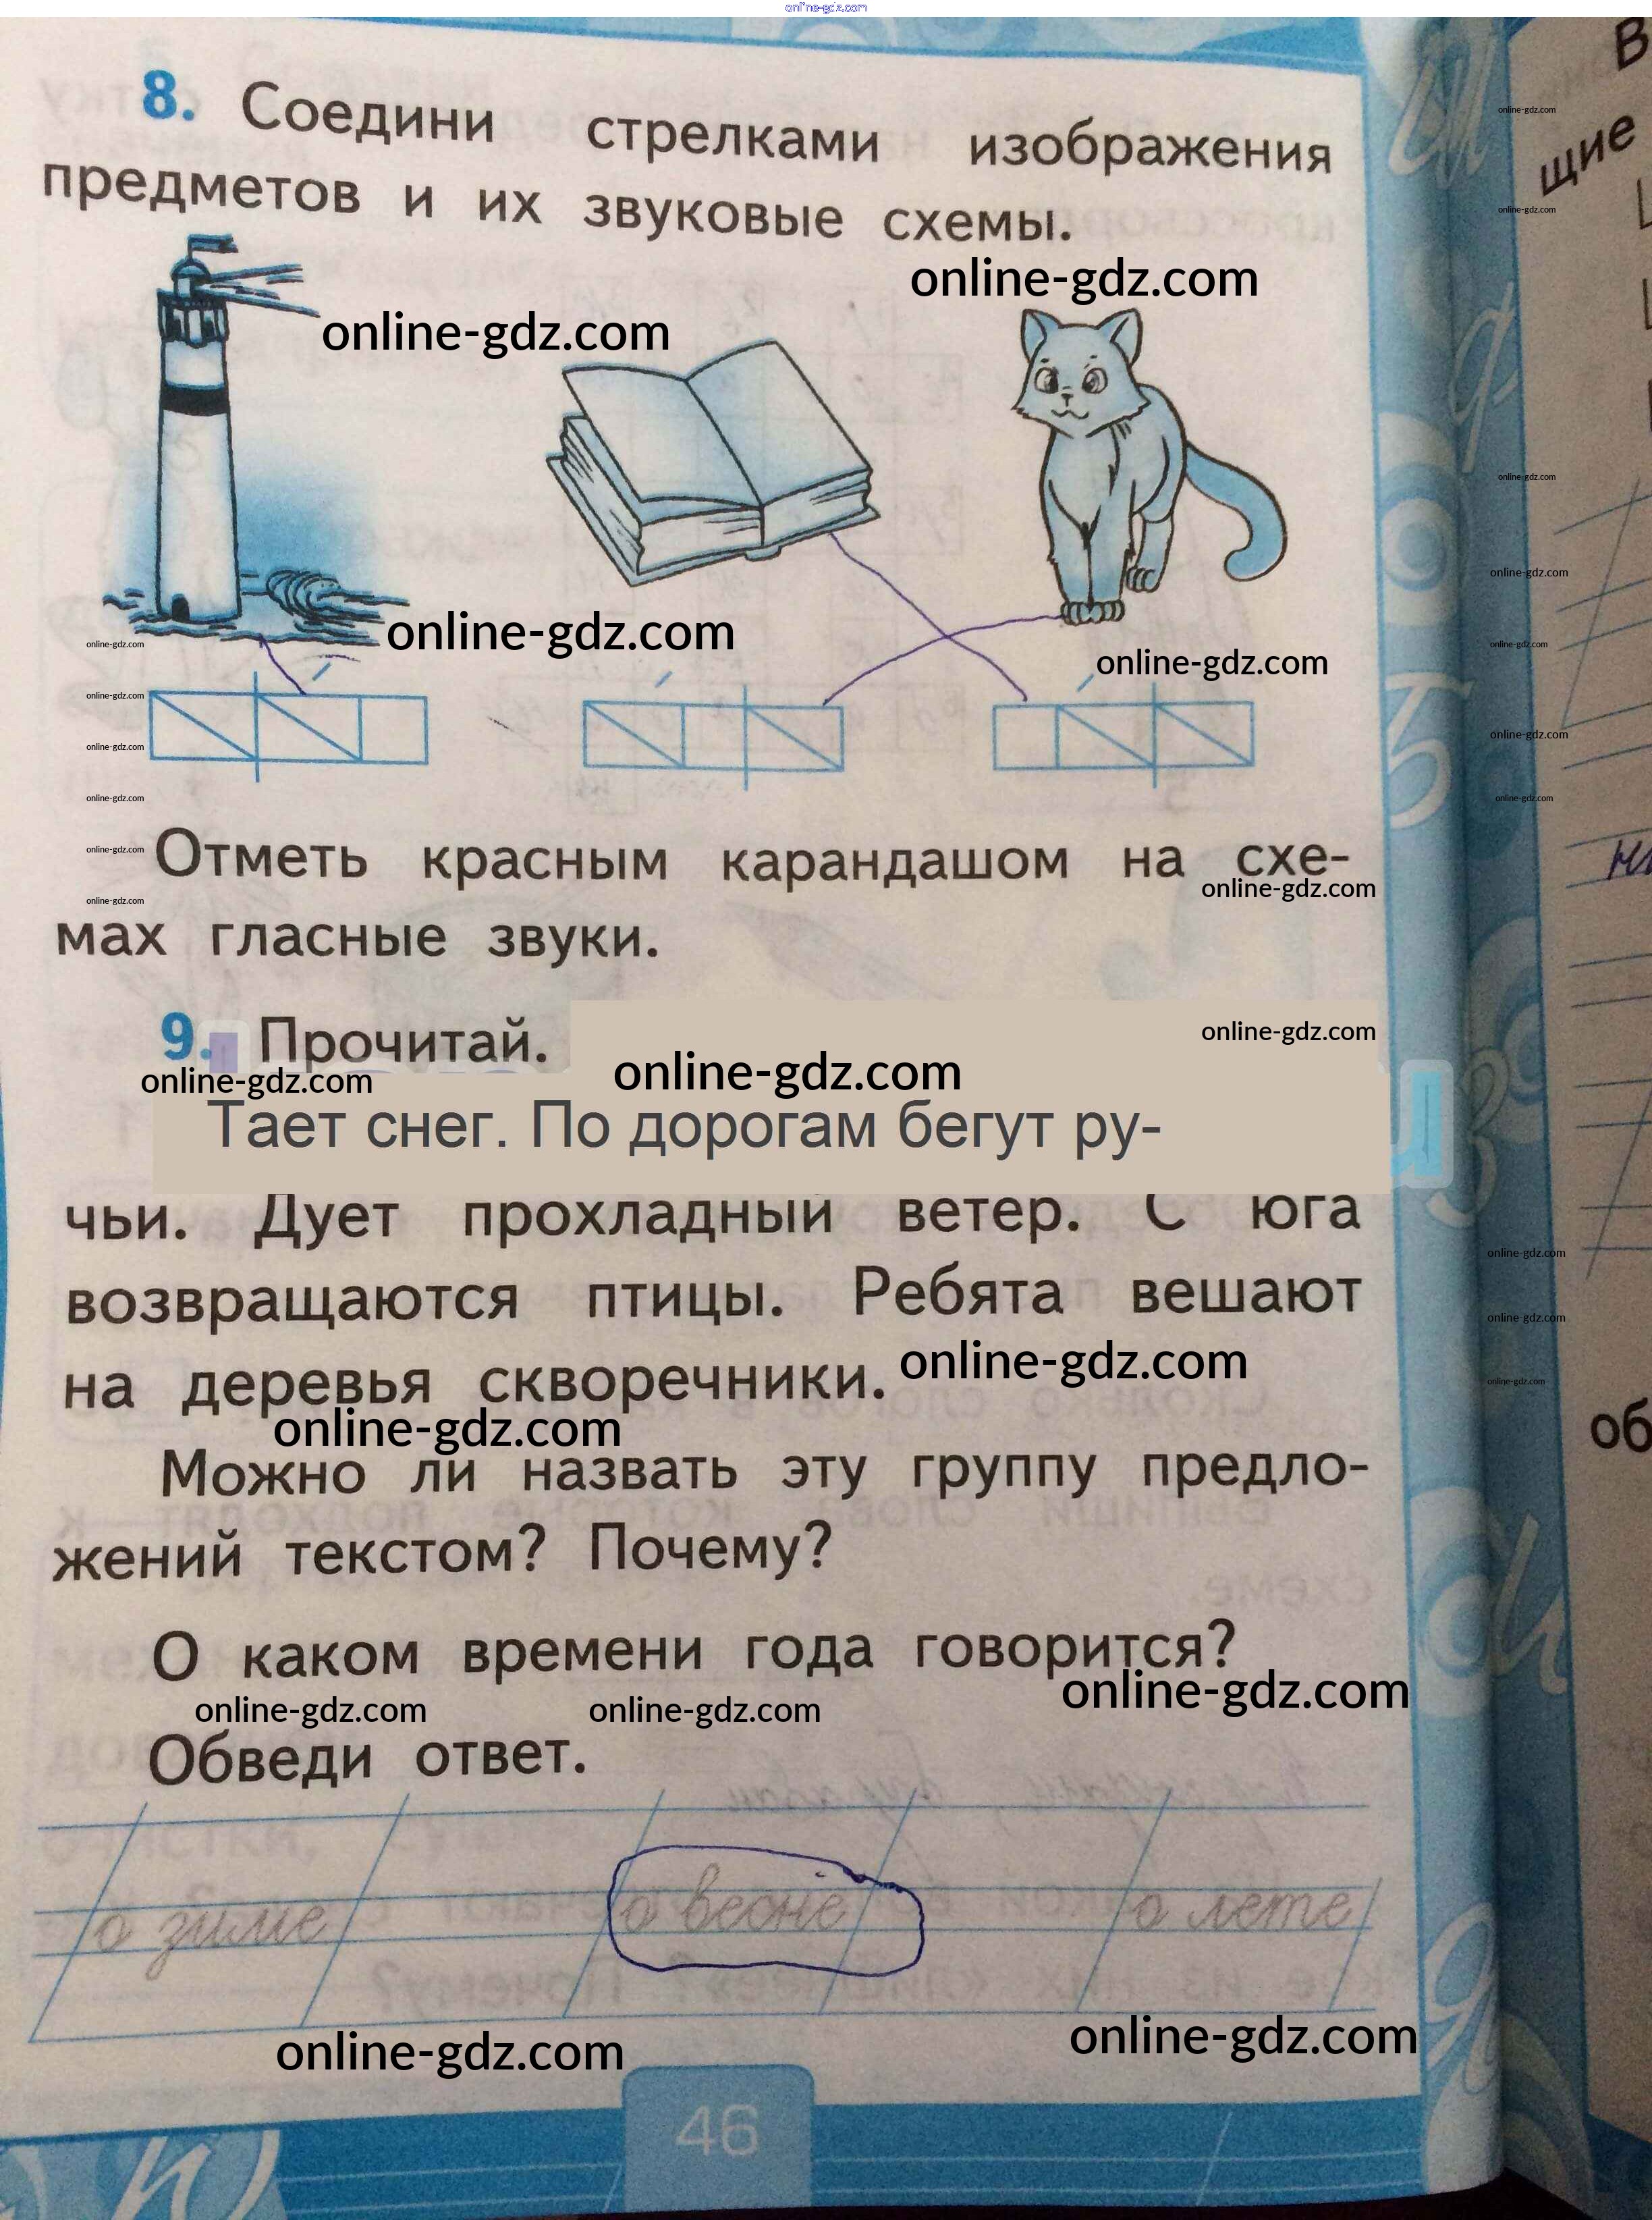 online-gdz.com
8. Соедини стрелками изображения
предметов и их звуковые схемы.
online-gdz.com
online-gdz.com
online-gdz.com
online-gdz.com
online-gdz.com
online-gdz.com
online-gdz.com
online-gdz.com
Отметь красным карандашом на схе-
online-gdz.com
online-gdz.com
online-gdz.com
мах гласные звуки.
9. Прочитай.
online-gdz.com
online-gdz.com
online-gdz.com
Тает снег. По дорогам бегут ру-
чьи. Дует прохладный ветер. С юга
возвращаются птицы. Ребята вешают
на деревья скворечники.
online-gdz.com
online-gdz.com
Можно ли назвать эту группу предло-
жений текстом? Почему?
О каком времени года говорится?
online-gdz.com
online-gdz.com
online-gdz.com
Обведи ответ.
о зиме о весне о лете
online-gdz.com
online-gdz.com
46
online-gdz.com
online-gdz.com
online-gdz.com
online-gdz.com
online-gdz.com
online-gdz.com
online-gdz.com
online-gdz.com
online-gdz.com
online-gdz.com
В
щие
об